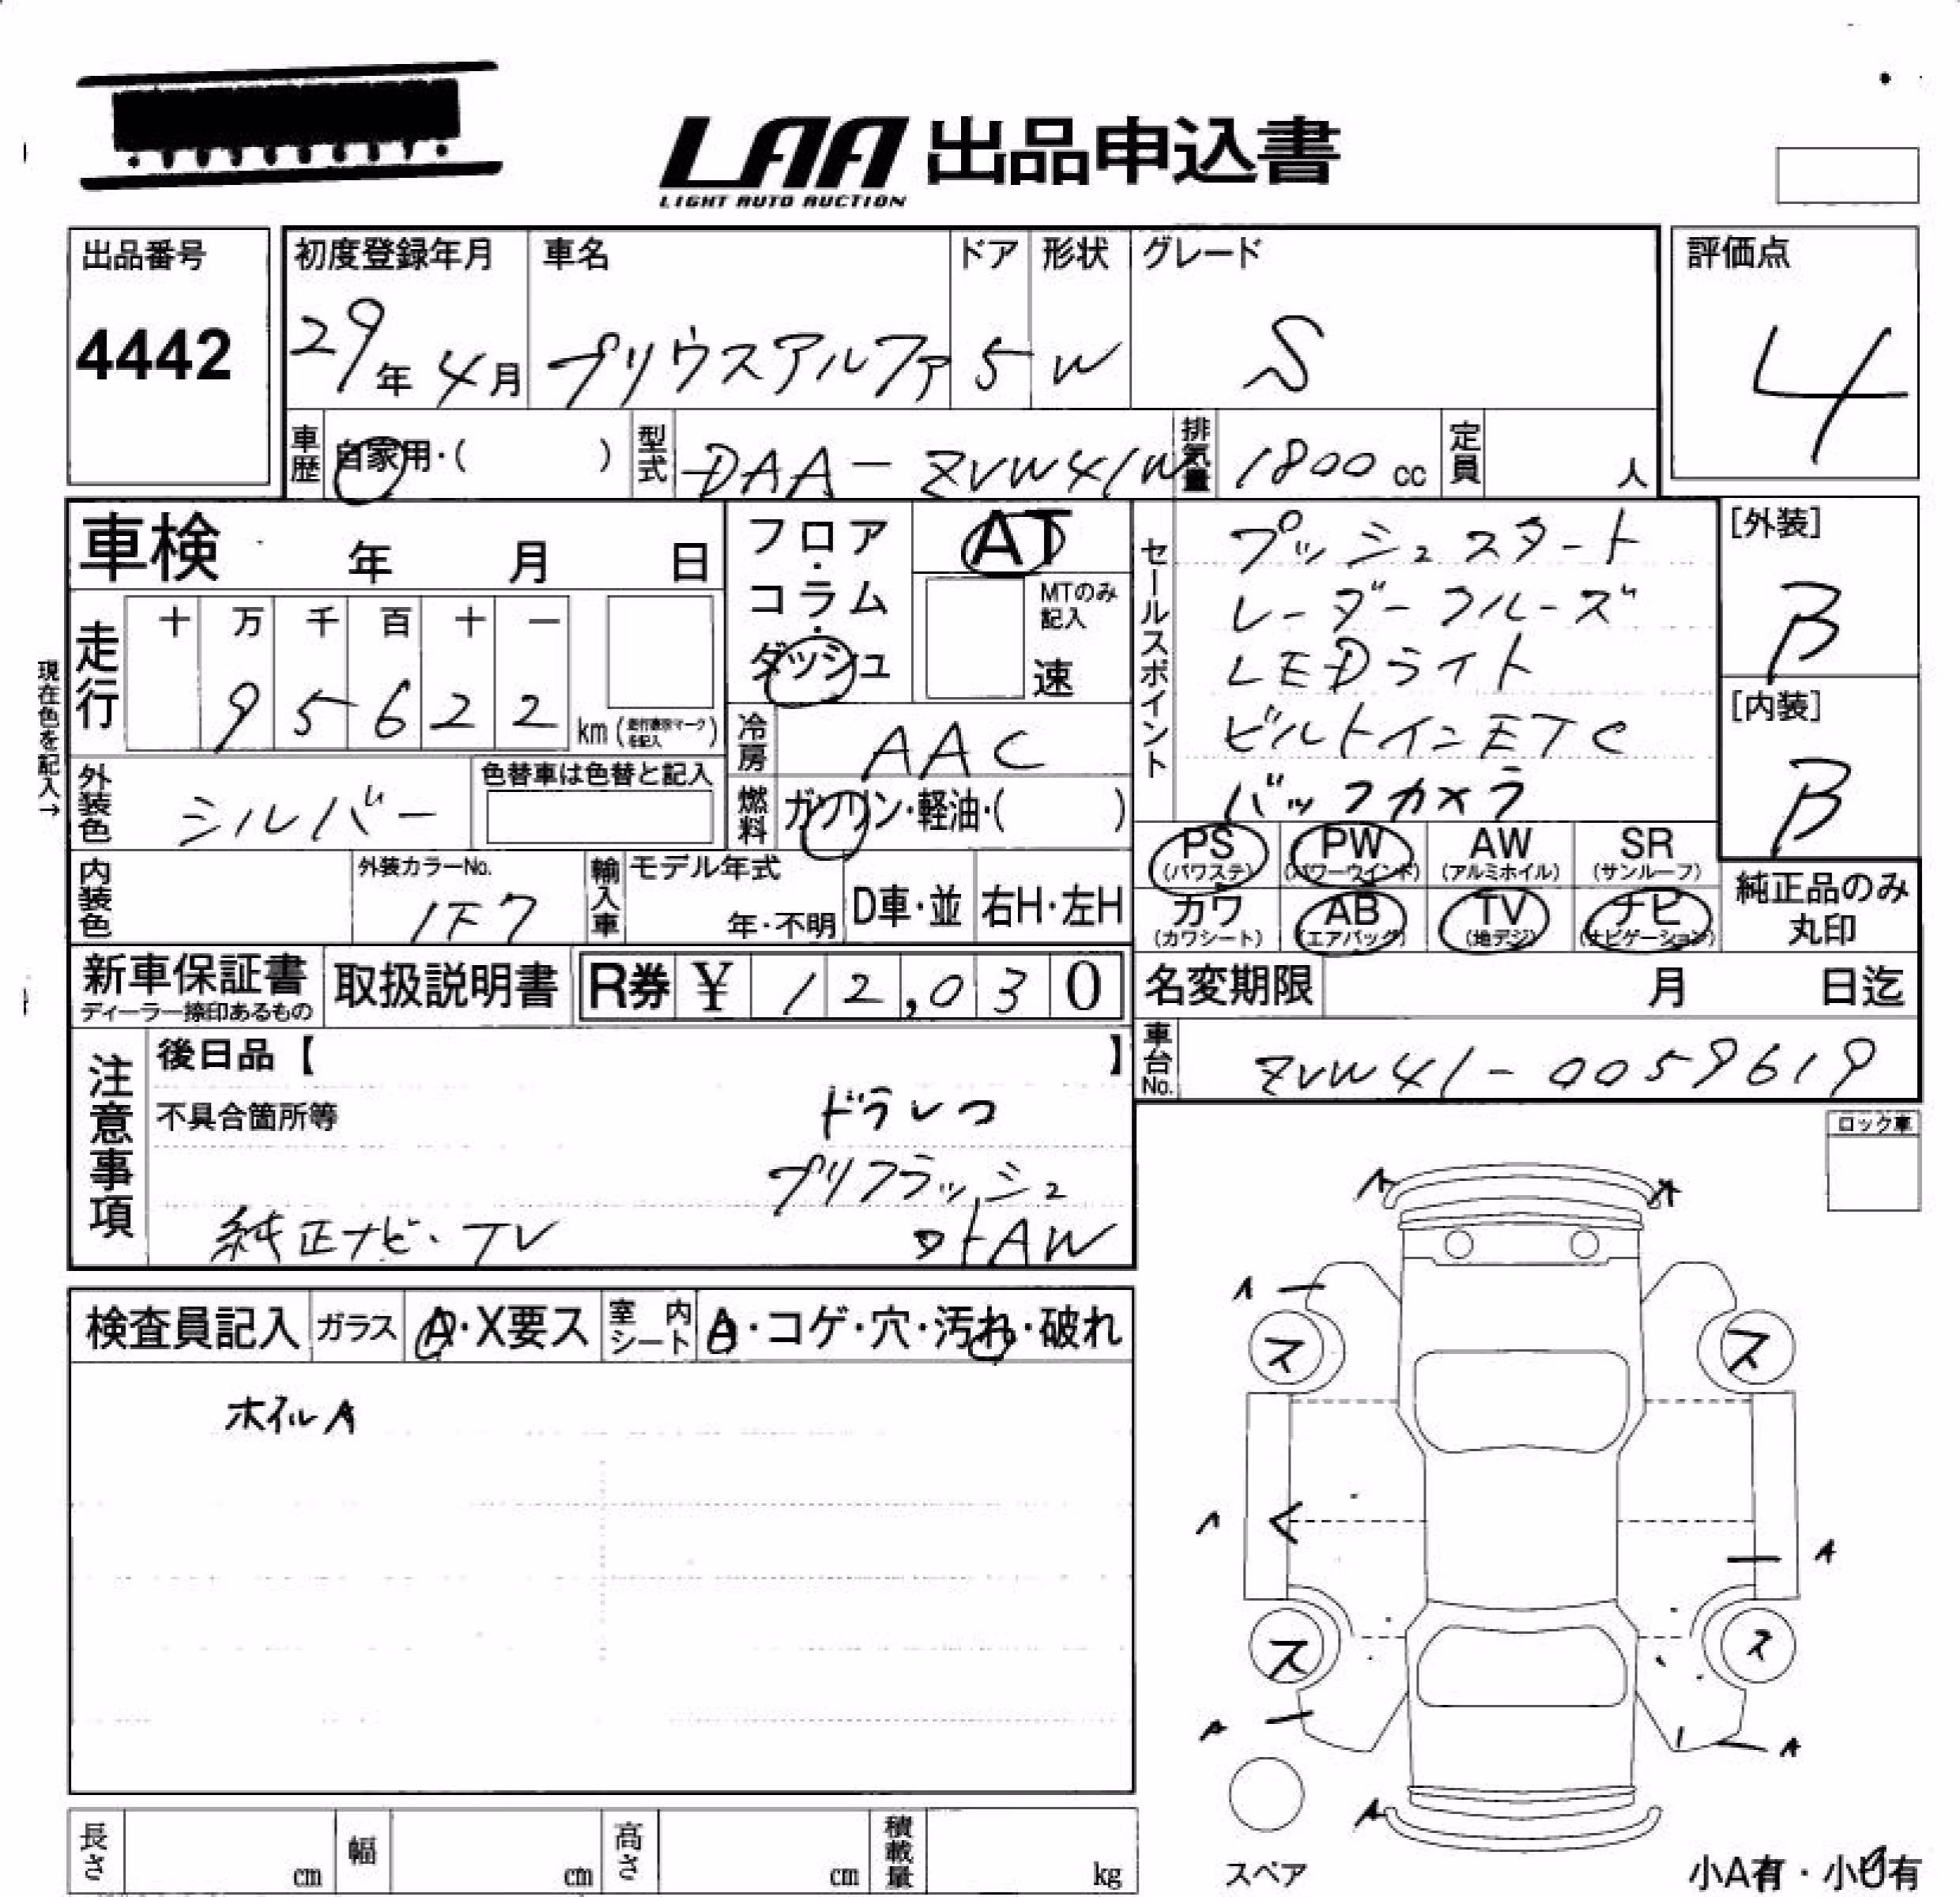 LAA 出品申込書
LIGHT AUTO AUCTION
出品番号
4442
初度登録年月
29年 4月
車名
プリウスアルファ
ドア
5
形状
W
グレード
S
評価点
4
車歴 自家用・( )
型式 DAA-ZVW41W
排気量 1800 cc
定員 人
車検 年 月 日
フロア・コラム・ダッシュ
AT
MTのみ記入
速
セールスポイント
プッシュスタート
レーダークルーズ
LEDライト
ビルトインETC
バックカメラ
[外装]
B
[内装]
B
現在色を記入→
走行
十 万 千 百 十 一
9 5 6 2 2
km
冷房 AAC
燃料 ガソリン・軽油・( )
外装色 シルバー
色替車は色替と記入
内装色
外装カラーNo.
1F7
輸入車
モデル年式
年・不明
D車・並
右H・左H
PS (パワステ)
PW (パワーウインド)
AW (アルミホイル)
SR (サンルーフ)
カワ (カワシート)
AB (エアバッグ)
TV (地デジ)
ナビ (ナビゲーション)
純正品のみ
丸印
新車保証書
ディーラー捺印あるもの
取扱説明書
R券 ¥ 12,030
名変期限 月 日迄
車台No. ZVW41-0059619
注意事項
後日品【 】
不具合箇所等
ドラレコ
プリクラッシュ
純正ナビ・TV
AW
ロック車
検査員記入
ガラス A・X要ス
室内シート A・コゲ・穴・汚れ・破れ
ホイルA
A A
A
ス ス
A A
ス ス
A A
A
スペア
小A有・小U有
長さ cm
幅 cm
高さ cm
積載量 kg